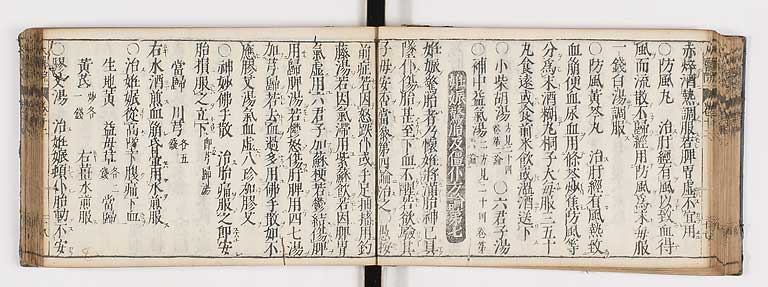 赤焠酒熱調服若脾胃虛不宜用
○防風丸　治肝經有風以致血得
風而流散不歸經用防風爲末每服
一錢白湯調服
○防風黃芩丸　治肝經有風熱致
血崩便血尿血用條芩炒焦防風等
分爲末酒糊丸桐子大每服三五十
丸食遠或食前米飲或溫酒送下
○小柴胡湯　方見二十四卷第　○六君子湯
○補中益氣湯　二方見二十四卷第
妊娠驚胎及僵仆方論第七
妊娠驚胎者乃懷妊將滿胎神已具
墜仆傷胎甚至下血不醒若欲驗其
子母安否當參第四論治之　愚按
前症若因怒跌仆或手足抽搐用鈎
藤湯若因氣滯用紫蘇飲若因脾胃
氣虛用六君子加蘇梗若鬱結傷脾
用歸脾湯若鬱怒傷肝脾用四七湯
加芎歸若去血過多用佛手散如不
應膠艾湯氣血虛八珍加膠艾
○神妙佛手散　治胎痛服之即安
胎損服之立下　即芎歸湯
當歸　川芎　各五錢
右水酒煎血崩昏暈用水煎服
○治妊娠從高墜下腹痛下血
生地黃　益母草　各二錢　當歸
黃芪　炒各一錢　右薑水煎服
○膠艾湯　治妊娠頓仆胎動不安